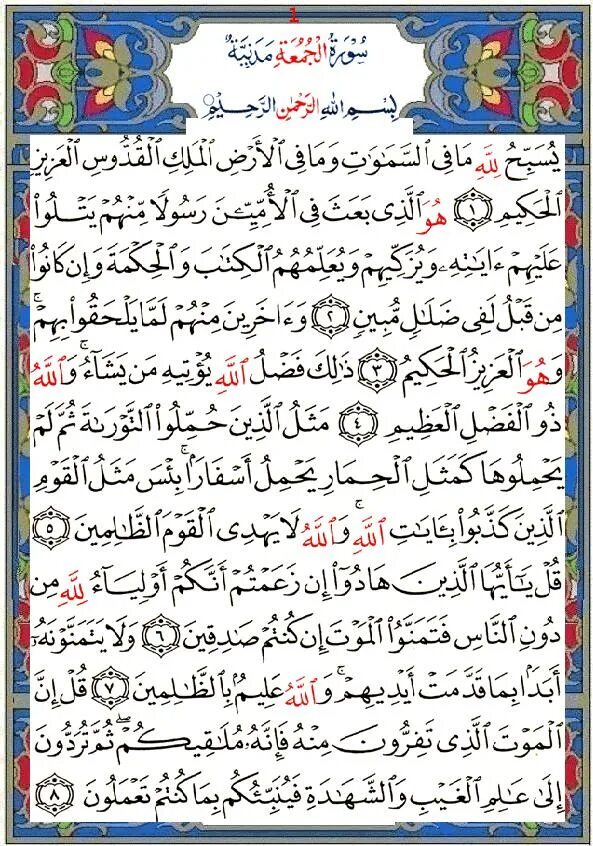 1
سُورَةُ الْجُمُعَةِ مَدَنِيَّةٌ
بِسْمِ اللَّهِ الرَّحْمَٰنِ الرَّحِيمِ
يُسَبِّحُ لِلَّهِ مَا فِي السَّمَٰوَٰتِ وَمَا فِي الْأَرْضِ الْمَلِكِ الْقُدُّوسِ الْعَزِيزِ
الْحَكِيمِ ١ هُوَ الَّذِي بَعَثَ فِي الْأُمِّيِّـۧنَ رَسُولًا مِّنْهُمْ يَتْلُوا۟
عَلَيْهِمْ ءَايَٰتِهِۦ وَيُزَكِّيهِمْ وَيُعَلِّمُهُمُ الْكِتَٰبَ وَالْحِكْمَةَ وَإِن كَانُوا۟
مِن قَبْلُ لَفِي ضَلَٰلٍ مُّبِينٍ ٢ وَءَاخَرِينَ مِنْهُمْ لَمَّا يَلْحَقُوا۟ بِهِمْ ۚ
وَهُوَ الْعَزِيزُ الْحَكِيمُ ٣ ذَٰلِكَ فَضْلُ اللَّهِ يُؤْتِيهِ مَن يَشَآءُ ۚ وَاللَّهُ
ذُو الْفَضْلِ الْعَظِيمِ ٤ مَثَلُ الَّذِينَ حُمِّلُوا۟ التَّوْرَىٰةَ ثُمَّ لَمْ
يَحْمِلُوهَا كَمَثَلِ الْحِمَارِ يَحْمِلُ أَسْفَارًۢا ۚ بِئْسَ مَثَلُ الْقَوْمِ
الَّذِينَ كَذَّبُوا۟ بِـَٔايَٰتِ اللَّهِ ۚ وَاللَّهُ لَا يَهْدِي الْقَوْمَ الظَّٰلِمِينَ ٥
قُلْ يَٰٓأَيُّهَا الَّذِينَ هَادُوٓا۟ إِن زَعَمْتُمْ أَنَّكُمْ أَوْلِيَآءُ لِلَّهِ مِن
دُونِ النَّاسِ فَتَمَنَّوُا۟ الْمَوْتَ إِن كُنتُمْ صَٰدِقِينَ ٦ وَلَا يَتَمَنَّوْنَهُۥٓ
أَبَدًۢا بِمَا قَدَّمَتْ أَيْدِيهِمْ ۚ وَاللَّهُ عَلِيمٌۢ بِالظَّٰلِمِينَ ٧ قُلْ إِنَّ
الْمَوْتَ الَّذِي تَفِرُّونَ مِنْهُ فَإِنَّهُۥ مُلَٰقِيكُمْ ۖ ثُمَّ تُرَدُّونَ
إِلَىٰ عَٰلِمِ الْغَيْبِ وَالشَّهَٰدَةِ فَيُنَبِّئُكُم بِمَا كُنتُمْ تَعْمَلُونَ ٨